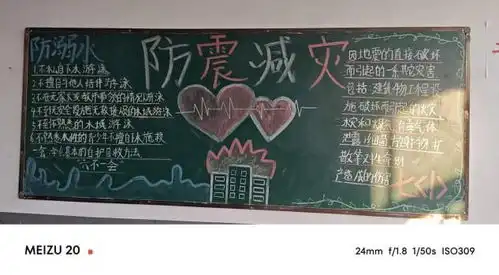 防溺水
防震减灾
1.不私自下水游泳
2.不擅自与他人结伴游泳
3.不在无家长或教师带领的情况下游泳
4.不到无安全设施无救援人员的水域游泳
5.不到不熟悉的水域游泳
6.不熟悉水性的青少年不擅自下水施救
六不一会
因地震的直接破坏
而引起的一系列灾害
包括:建筑物工程设
施破坏而引起的火灾
水灾和煤气、有毒气体
泄露
MEIZU 20
24mm f/1.8 1/50s ISO309